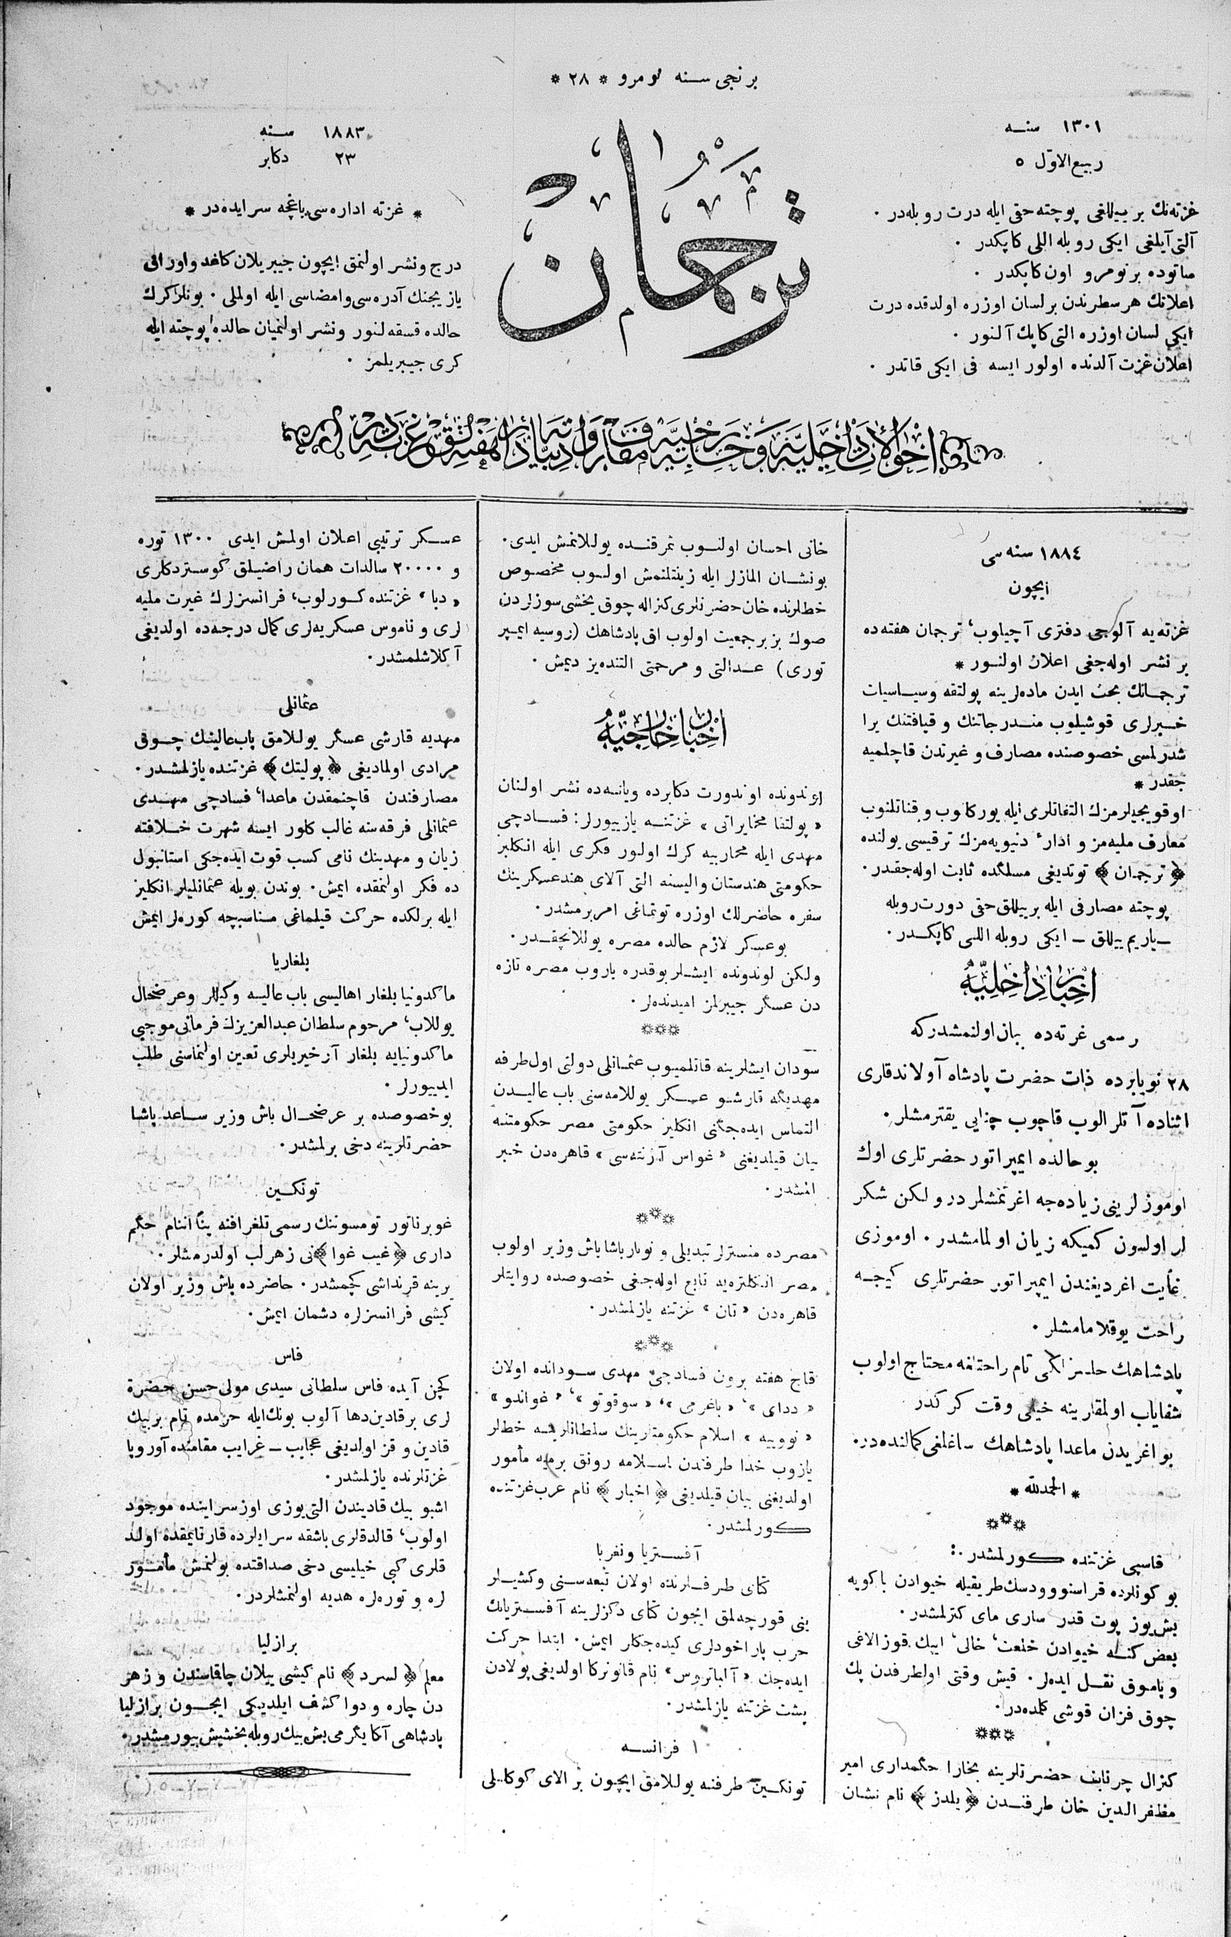 برنجی سنه نومرو * ٢٨ *
١٣٠١ سنه
ربیع الاوّل ٥
١٨٨٣ سنه
٢٣ دکابر
ترجمان
غزته‌نك بر ییللغی پوچته حقی ایله درت روبله‌در .
آلتی آیلغی ایکی روبله اللی کاپکدر .
صاتوده بر نومرو اون کاپکدر .
اعلانك هر سطرندن بر لسان اوزره اولدقده درت
ایکی لسان اوزره التی کاپك آلنور .
اعلان غزت آلدنده اولور ایسه فی ایکی قاتدر .
* غزته اداره‌سی باغچه سرایده‌در *
درج و نشر اولنمق ایچون جیبریلان کاغد و اوراقی
یازیجنك آدره‌سی و امضاسی ایله اولملی . بونلر کرك
حالده قسقه‌لنور ونشر اولنمیان حالده پوچته ایله
کری جیبریلمز .
١٨٨٤ سنه سی
ایچون
غزته‌یه آلوجی دفتری آچیلوب، ترجمان هفته‌ده
بر نشر اوله‌جغی اعلان اولنور *
ترجمانك بحث ایدن ماده‌لرینه پولتقه وسیاسیات
خبرلری قوشیلوب مندرجاتنك و قیافتنك یرا
شدرلمسی خصوصنده مصارف و غیرتدن قاچلمیه
جقدر *
اوقویجیلرمزك التفاتلری ایله یورکلنوب و قناتلنوب
معارف ملیه‌مز و اداره دنیویه‌مزك ترقیسی یولنده
﴿ ترجمان ﴾ توتدیغی مسلکده ثابت اوله‌جقدر.
پوچته مصارفی ایله بر ییللق حقی دورت روبله
ـ یاریم ییللق ـ ایکی روبله اللی کاپکدر.
اخبار داخلیّه
رسمی غزته‌ده بیان اولنمشدرکه
٢٨ نویابرده ذات حضرت پادشاه آولاندقلری
اثناده آتلر الوب قاچوب چنایی یقترمشلر.
بو حالده ایمپراتور حضرتلری اوك
اوموزلرینی زیاده‌جه اغرتمشلر در ولکن شکر
لر اولسون کمیکه زیان اولمامشدر. اوموزی
غایت اغردیغندن ایمپراتور حضرتلری کیجه
راحت یوقلامامشلر .
پادشاهك حلیمزلکی تام راحتلغه محتاج اولوب
شفایاب اولمقارینه خیلی وقت کرکدر
بو اغریدن ماعدا پادشاهك ساغلغی کمالنده‌در.
* الحمدلله *
قاسپی غزتنده کورلمشدر :
بو کونلرده قراسنوودسك طریقیله خیوادن باکویه
بش یوز پوت قدر ساری مای کترلمشدر.
بعض کسه خیوادن خلعت، خالی، ایپك قوزالاغی
و پاموق نقل ایده‌لر. قیش وقتی اول طرفدن پك
چوق فزان قوشی کلمده‌در.
***
کنرال چرنایف حضرتلرینه بخارا حکمداری امیر
مظفرالدین خان طرفندن ﴿ یلدز ﴾ نام نشان
خانی احسان اولنوب شرقنده یوللانمش ایدی.
بو نشان المازلر ایله زینتلنمش اولوب مخصوص
خطلرنده خان حضرتلری کنراله چوق یخشی سوزلردن
صوك بز بر جمعیت اولوب اق پادشاهك (روسیه ایمپر
توری) عدالتی و مرحمتی التنده‌یز دیمش .
اخبار خارجیّه
لوندونده اوندورت دکابرده ویانه‌ده نشر اولنان
« پولتقا مخابراتی » غزتنه یازییورلر: فسادچی
مهدی ایله محاربیه کرك اولور فکری ایله انکلیز
حکومتی هندستان والیسنه التی آلای هند عسکرینك
سفره حاضرلك اوزره توتماغی امر برمشدر.
بو عسکر لازم حالده مصره یوللانجقدر.
ولکن لوندونده ایشلر بوقدره باروب مصره تازه
دن عسکر جیبرلمز امیدنده‌لر.
***
سودان ایشلرینه قاتلمیوب عثمانلی دولتی اول طرفه
مهدیگه قارشو عسکر یوللامه‌سنی باب عالیدن
التماس ایده‌جگنی انکلیز حکومتی مصر حکومتنه
بیان قیلدیغنی « غواس آژنته‌سی » قاهره‌دن خبر
المشدر.
***
مصرده منسترلر تبدیلی و نوبار پاشا باش وزیر اولوب
مصر انکلتره‌یه تابع اوله‌جغی خصوصده روایتلر
قاهره‌دن « تان » غزتنه یازلمشدر.
***
قاچ هفته برون فسادچی مهدی سودانده اولان
« ددای »، « باغرمی »، « سوقوتو »، « غواندو »
« نووبیه » اسلام حکومتارینك سلطانلرینه خطلر
یازوب خدا طرفندن اسلامه رونق برمیه مأمور
اولدیغنی بیان قیلدیغی ﴿ اخبار ﴾ نام عرب غزتنده
کورلمشدر.
آفستریا ونغریا
کتای طرفلرنده اولان تبعه‌سنی وکشیلر
ینی قورچه‌لمق ایچون کتای دکزلرینه آفستریانك
حرب پاراخودلری کیده‌جکلر ایمش. ابتدا حرکت
ایده‌جك « آلباتروس » نام قانونرکا اولدیغی پولادن
پشت غزتنه یازلمشدر.
فرانسه
تونکین طرفنه یوللامق ایچون بر الای کوکللی
عسکر ترتیبی اعلان اولمش ایدی ١٣٠٠ توره
و ٢٠٠٠٠ سالدات همان راضیلق کوستردکلری
« دبا » غزتنده کورلوب، فرانسزلرك غیرت ملیه
لری و ناموس عسکریه‌لری کمال درجه‌ده اولدیغی
آکلاشلمشدر.
عثمانلی
مهدیه قارشی عسکر یوللامق باب عالینك چوق
مرادی اولمادیغی ﴿ پولیتك ﴾ غزتنده یازلمشدر.
مصارفندن قاچنمقدن ماعدا، فسادچی مهدی
عثمانلی فرقه‌سنه غالب کلور ایسه شهرت خلافته
زیان و مهدینك نامی کسب قوت ایده‌جکی استانبول
ده فکر اولنمقده ایمش. بوندن بویله عثمانلیلر انکلیز
ایله برلکده حرکت قیلماغی مناسبچه کوره‌لر ایمش
بلغاریا
ماکدونیا بلغار اهالیسی باب عالیه وکیللر وعرضحال
یوللاب، مرحوم سلطان عبدالعزیزك فرمانی موجبی
ماکدونیایه بلغار آرخیریلری تعیین اولنماسنی طلب
ایدییورلر.
بو خصوصده بر عرضحال باش وزیر ساعد پاشا
حضرتلرینه دخی برلمشدر.
تونکین
غوبرناتور تومسوننك رسمی تلغرافنه بناً اننام حکم
داری ﴿ غیب غوا ﴾ نی زهرلب اولدرمشلر.
یرینه قرنداشی کچمشدر. حاضرده باش وزیر اولان
کیشی فرانسزلره دشمان ایمش.
فاس
کچن آیده فاس سلطانی سیدی مولی حسن حضرت
لری بر قادین دها آلوب بونك ایله حرمده تام بر بیك
قادین و قز اولدیغی عجایب ـ غرایب مقامنده آوروپا
غزتلرنده یازلمشدر.
اشبو بیك قادیندن التی یوزی اوز سراینده موجود
اولوب، قالدقلری باشقه سرایلرده قارتایمقده اولد
قلری کبی خیلیسی دخی صداقتده بولنمش مأمور
لره و توره‌لره هدیه اولنمشلردر.
برازلیا
معلم ﴿ لسرد ﴾ نام کیشی ییلان چاقاسندن و زهر
دن چاره و دوا کشف ایلدیکی ایچون برازلیا
پادشاهی آکا یگرمی بش بیك روبله بخشیش بیورمشدر.